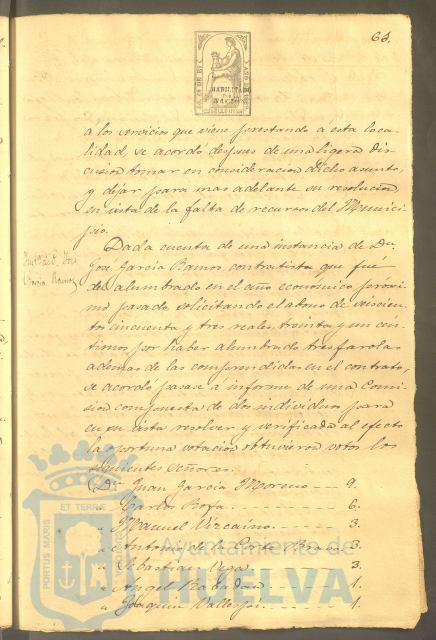 68.
HABILITADO
POR LA
NACION
á los servicios que viene prestando á esta loca-
lidad, se acordó despues de una ligera dis-
cusion tomar en consideracion dicho asunto,
y dejar para mas adelante su resolucion
en vista de la falta de recursos del Munici-
pio.
Dada cuenta de una instancia de Dn.
José Garcia Ramos contratista que fué
del alumbrado en el año economico proxi-
mo pasado, solicitando el abono de seiscien-
tos cincuenta y tres reales, treinta y un cen-
timos, por haber alumbrado tres farolas
ademas de las comprendidas en el contrato,
se acordó pasase á informe de una Comi-
sion compuesta de dos individuos para
en su vista resolver y verificada al efecto
la oportuna votacion obtuvieron votos los
siguientes Señores.
Inst.a de D. José
Garcia Ramos
Dn. Juan Garcia Moreno --- 9.
" Carlos Rofa. --- 6.
" Manuel Vizcaino. --- 3.
" Antonio de la Corte Bravo. 3.
" Sebastian Vega --- 3.
" Angel Rabadan --- 1.
" Joaquin Vallejo. --- 1.
PORTUS MARIS
ET TERRE
Ayuntamiento de
HUELVA